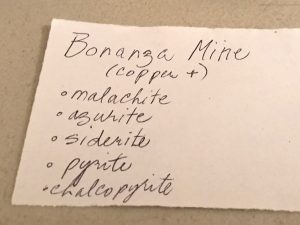 Bonanza Mine
(copper +)
• malachite
• azurite
• siderite
• pyrite
• chalcopyrite